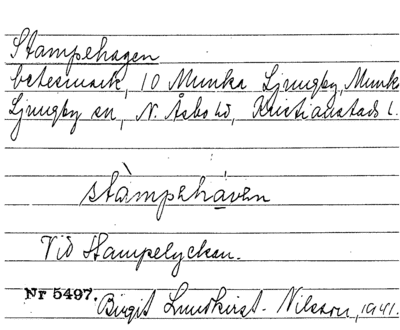 Stampehagen
betesmark, 10 Munka Ljungby, Munka
Ljungby sn, N. Åsbo hd, Kristianstads l.
stàmpehåven
Vid Stampelyckan.
Nr 5497. Birgit Lundkvist-Nilsson, 1941.